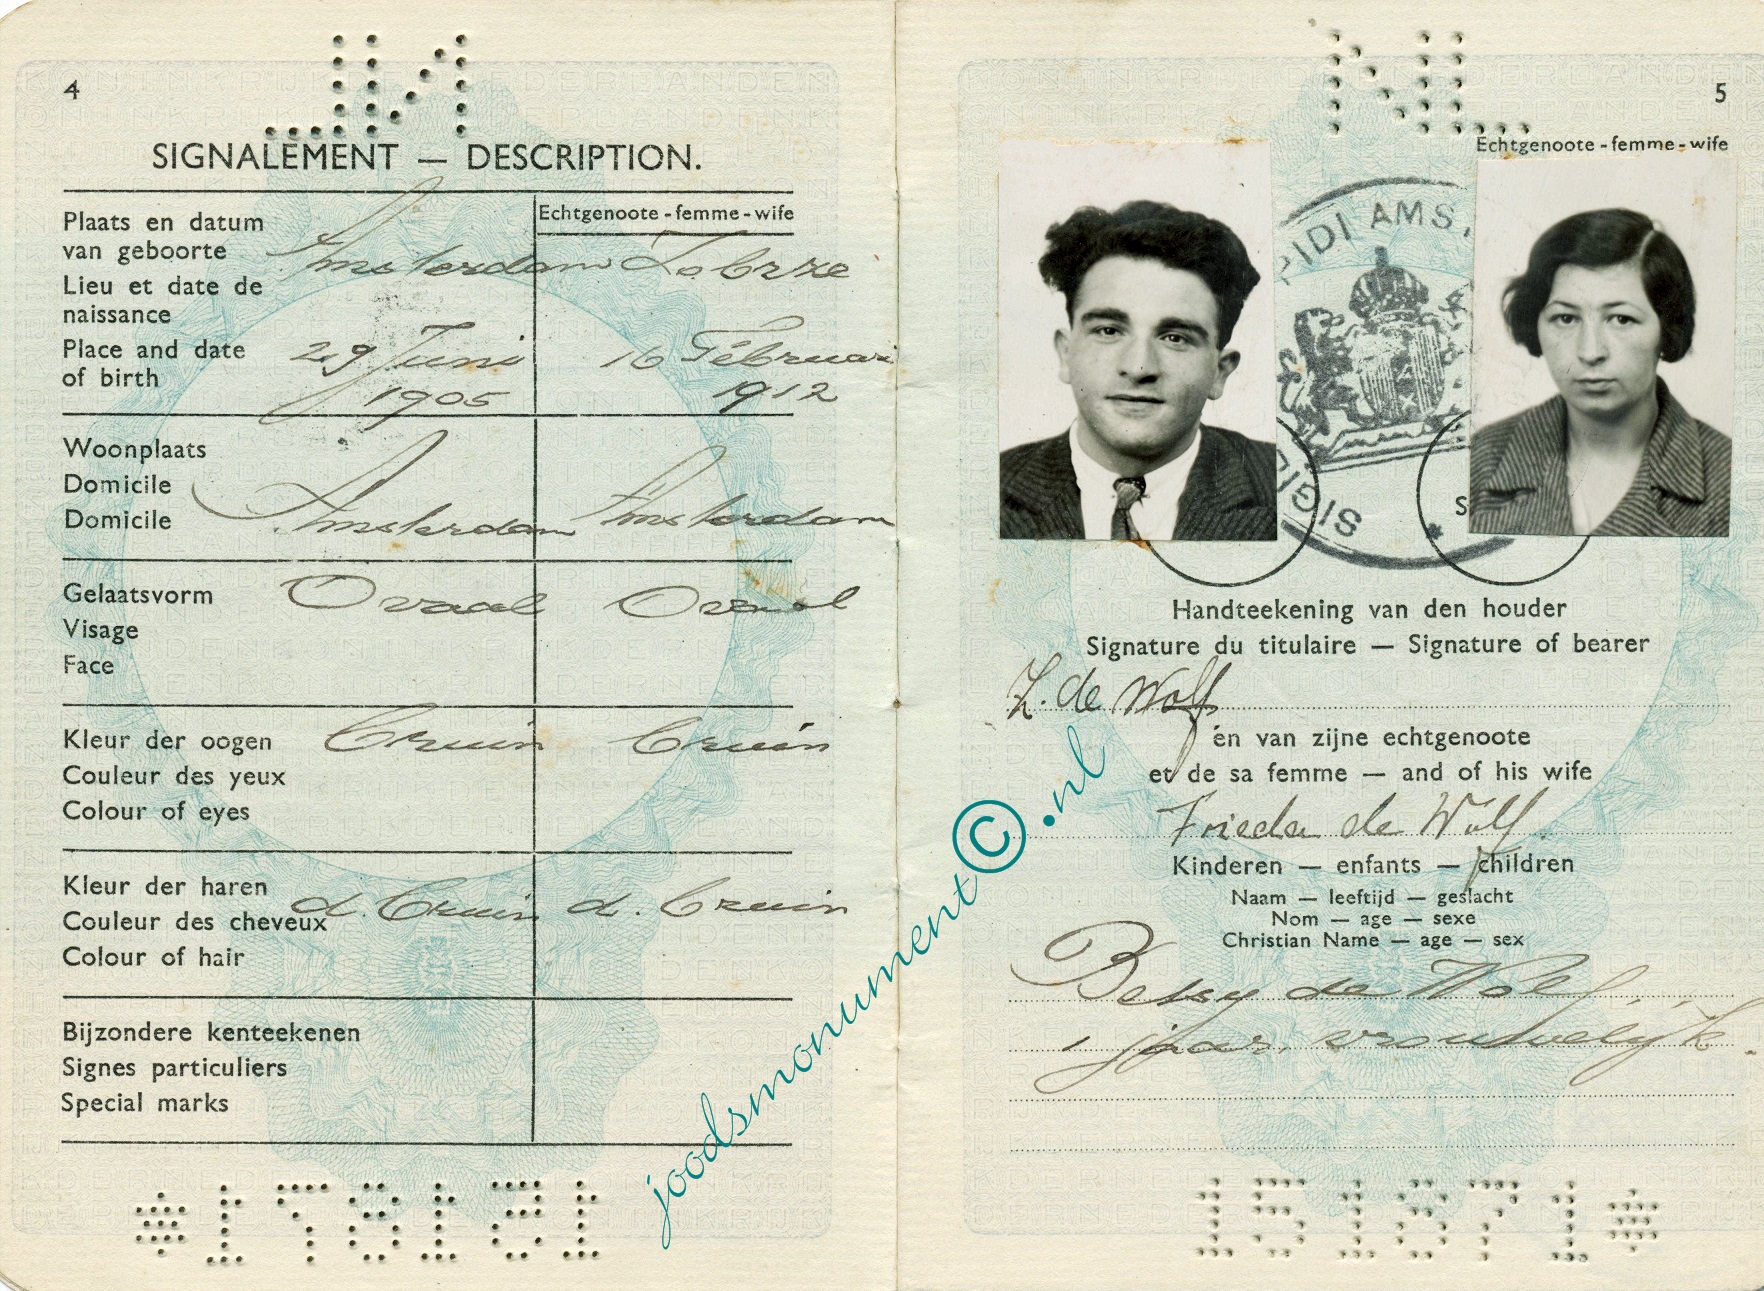 4
NL
SIGNALEMENT — DESCRIPTION.
Echtgenoote - femme - wife
Plaats en datum
van geboorte
Lieu et date de
naissance
Place and date
of birth
Amsterdam
29 Juni
1905
Zabrze
16 Februari
1912
Woonplaats
Domicile
Domicile
Amsterdam Amsterdam
Gelaatsvorm
Visage
Face
Ovaal Ovaal
Kleur der oogen
Couleur des yeux
Colour of eyes
bruin bruin
Kleur der haren
Couleur des cheveux
Colour of hair
d. bruin d. bruin
Bijzondere kenteekenen
Signes particuliers
Special marks
151871
joodsmonument©.nl
NL
5
Echtgenoote - femme - wife
AMS
Handteekening van den houder
Signature du titulaire — Signature of bearer
Z. de Wolf
én van zijne echtgenoote
et de sa femme — and of his wife
Frieda de Wolf.
Kinderen — enfants — children
Naam — leeftijd — geslacht
Nom — age — sexe
Christian Name — age — sex
Betsy de Wolf,
1 jaar, vrouwelijk.
151871